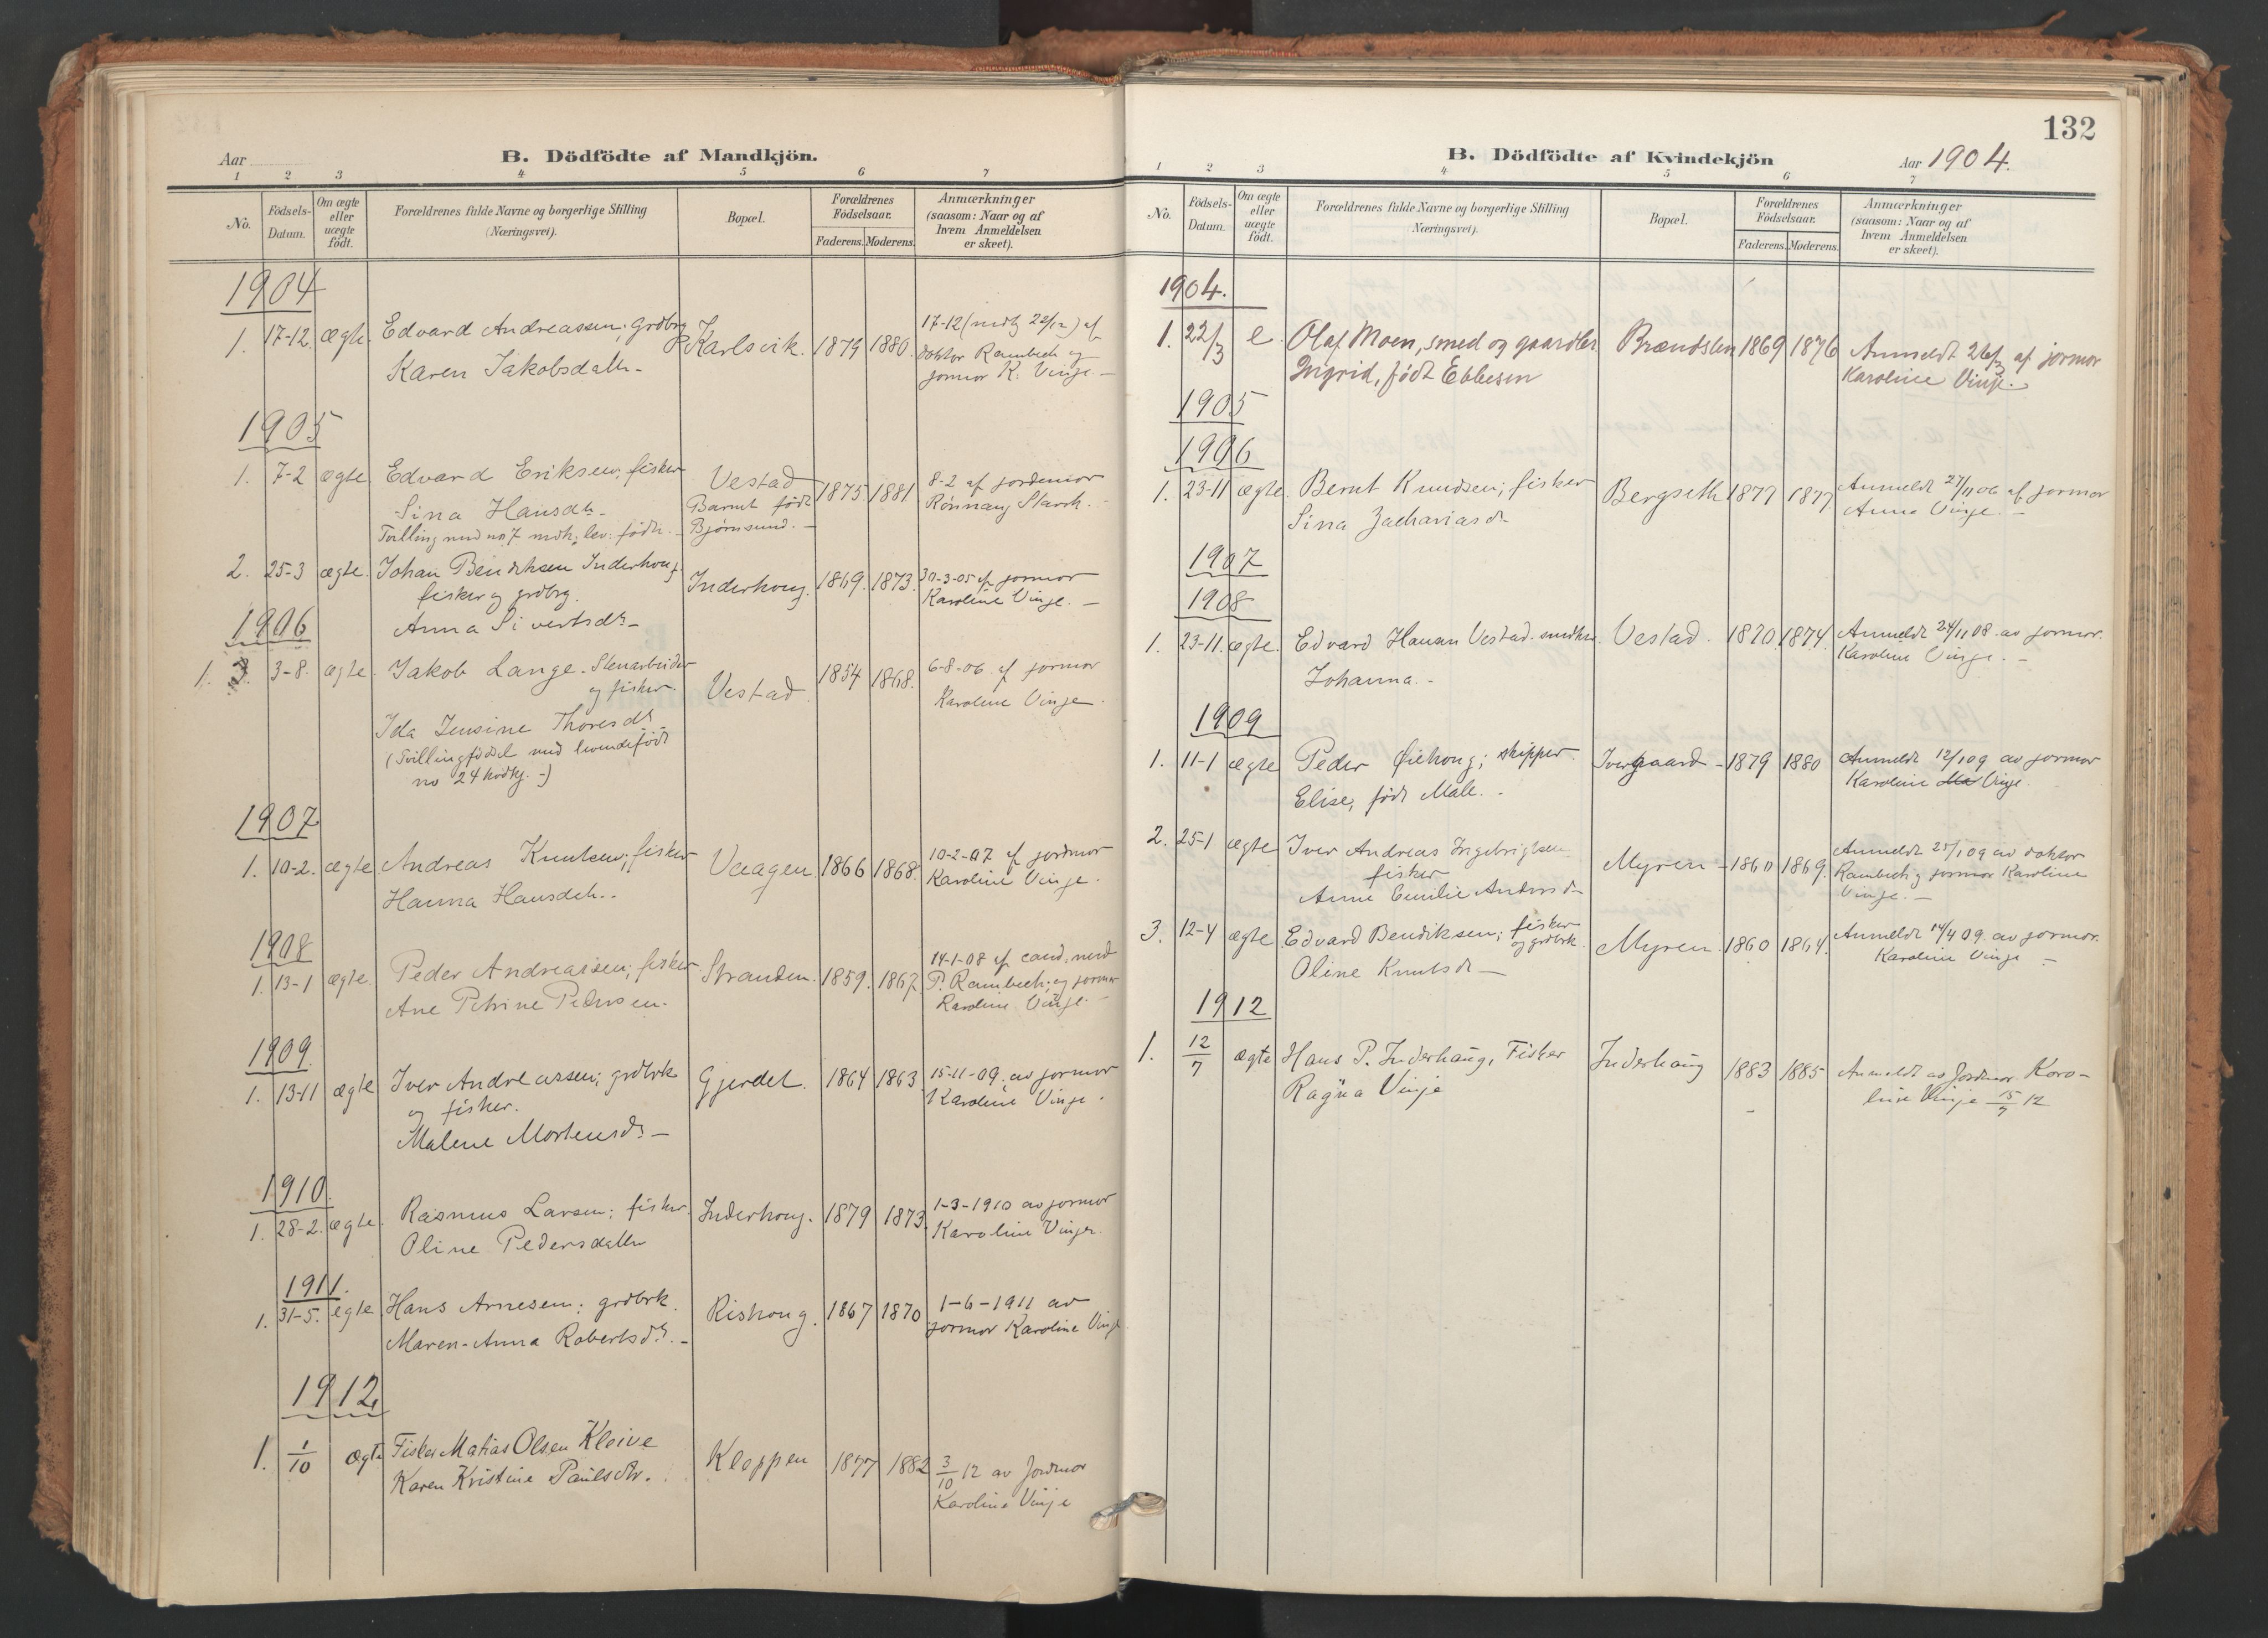 Aar
B. Dödfödte af Mandkjön.
1 2 3 4 5 6 7
No.
Födsels-
Datum.
Om ægte
eller
uægte
født.
Forældrenes fulde Navne og borgerlige Stilling
(Næringsvei).
Bopæl.
Forældrenes
Födselsaar.
Faderens. Moderens.
Anmærkninger
(saasom: Naar og af
hvem Anmeldelsen
er skeet).
1904
1. 17-12. ægte. Edvard Andreassen; grdbrg Karlsvik. 1879 1880. 17-12 (mdtg 22/12) af
Karen Jakobsdattr- doktor Rambech og
jormor K. Vinje. -
1905
1. 7-2 ægte Edvard Eriksen; fisker Vestad 1875 1881 8-2 af jordemor
Sina Hansdtr- Barnet født Rønnaug Starck. -
Tvilling med no 7 mdk; lev. født. - Bjørnsund. -
2. 25-3 ægte. Johan Bendiksen Inderhoug Inderhoug. 1869. 1873. 30-3-05 af jormor
fisker og grdbrg. Karoline Vinje. -
Anna Sivertsdtr-
1906
1. 3-8. ægte. Jakob Lange. Stenarbeider Vestad. 1854 1868. 6-8-06. af jormor
og fisker. Karoline Vinje.
Ida Jensine Thoresdtr
(Tvillingfødsel med levendefødt
no 24 kvdkj. -)
1907
1. 10-2. ægte Andreas Knutsen; fisker Vaagen. 1866 1868. 10-2-07 af jordmor
Hanna Hansdtr.. Karoline Vinje.
1908
1. 13-1 ægte. Peder Andreassen; fisker Stranden. 1859. 1867. 14-1-08 af cand. med
Ane Petrine Pedersen. P. Rambech; og jormor
Karoline Vinje. -
1909.
1. 13-11 ægte Iver Andreassen; grdbrk Gjerdet. 1864 1863 15-11-09. av jormor
og fisker. Karoline Vinje.
Malene Mortensdtr-
1910.
1. 28-2. ægte. Rasmus Larsen; fisker. Inderhoug. 1879 1873. 1-3-1910 av jormor
Oline Pedersdattr Karoline Vinje.
1911.
1. 31-5. egte Hans Arnesen; grdbrk. Rishoug. 1867 1870 1-6-1911 av
Maren-Anna Robertsdtr. - jormor Karoline Vinje
1912
1. 1/10 ægte Fisker Matias Olsen Kleive Kleppen 1877 1882 3/10 12 av Jordmor
Karen Kristine Paulsdtr. Karoline Vinje
132
B. Dödfödte af Kvindekjön
Aar 1904.
1 2 3 4 5 6 7
No.
Födsels-
Datum.
Om ægte
eller
uægte
født.
Forældrenes fulde Navne og borgerlige Stilling
Næringsvei).
Bopæl.
Forældrenes
Födselsaar.
Faderens. Moderens.
Anmærkninger
(saasom: Naar og af
hvem Anmeldelsen
er skeet).
1904.
1. 22/3 e. Olaf Moen, smed og gaardbr. 1869 1876 Anmeldt 26/3 af jormor
Ingrid, født Ebbesen Karoline Vinje.
1905
1906
1. 23-11 ægte. Bernt Knudsen; fisker Bergseth 1877 1877 Anmeldt 27/11 06 af jormor
Sina Zachariasdtr Anna Vinje. -
1907
1908
1. 23-11. ægte. Edvard Hansen Vestad. Vestad. 1870 1874 Anmeldt 24/11 08. av jormor.
Johanna. - Karoline Vinje. -
1909
1. 11-1 ægte Peder Øiehoug; skipper. Ivergaard - 1879 1880 Anmeldt 12/1 09 av jormor
Elise, født Male. - Karoline Vinje.
2. 25-1 ægte Iver Andreas Ingebrigtsen Myren - 1860 1869. Anmeldt 25/1 09 av doktor
fisker Rambech og jormor Karoline
Anne Emilie Andersdtr Vinje. -
3. 12-4 ægte Edvard Bendiksen; fisker Myren. 1860 1864. Anmeldt 14/4 09. av jormor.
og grdbrk. Karoline Vinje -
Oline Knutsdtr -
1912
1. 12/7 ægte Hans P. Inderhaug, Fisker Inderhaug 1883 1885 Anmeldt av Jordmor Karo-
Ragna Vinje line Vinje 15/7 12